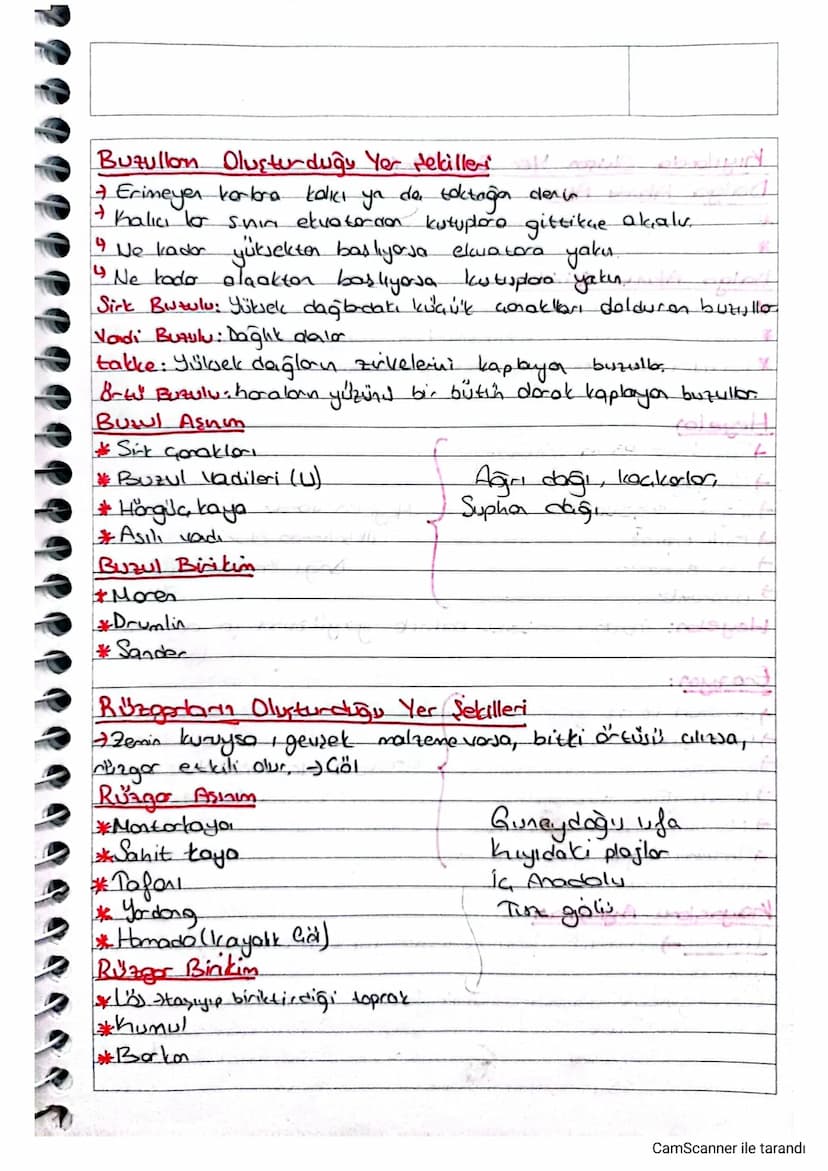 Buzulların Oluşturduğu Yer Şekilleri
→ Erimeyen karlara kalıcı ya da toktağan denir
→ Kalıcı kar sınırı ekvatordan kutuplara gittikçe alçalır.
↳ Ne kadar yüksekten başlıyorsa ekvatora yakın
↳ Ne kadar alçaktan başlıyorsa kutuplara yakın
Sirk Buzulu: Yüksek dağlardaki küçük çanakları dolduran buzullar
Vadi Buzulu: Dağlık alanlar
takke: Yüksek dağların zirvelerini kaplayan buzullar.
Örtü Buzulu: karaların yüzünü bir bütün olarak kaplayan buzullar.
Buzul Aşınım
* Sirk çanakları
* Buzul Vadileri (U)
Ağrı dağı, kaçkarlar,
* Hörgüç kaya
Süphan dağı
* Asılı vadi
Buzul Birikim
* Moren
* Drumlin
* Sander
Rüzgarların Oluşturduğu Yer Şekilleri
→ Zemin kuruysa, gevşek malzeme varsa, bitki örtüsü cılızsa,
rüzgar etkili olur. → Çöl
Rüzgar Aşınım
* Mantarkaya
Güneydoğu Urfa
* Şahit kaya
Kıyıdaki plajlar
* Tafoni
İç Anadolu
* Yardang
Tuz gölü
* Hamada (kayalık Çöl)
Rüzgar Birikim
* Lös → taşıyıp biriktirdiği toprak
* Kumul
* Barkan
CamScanner ile tarandı